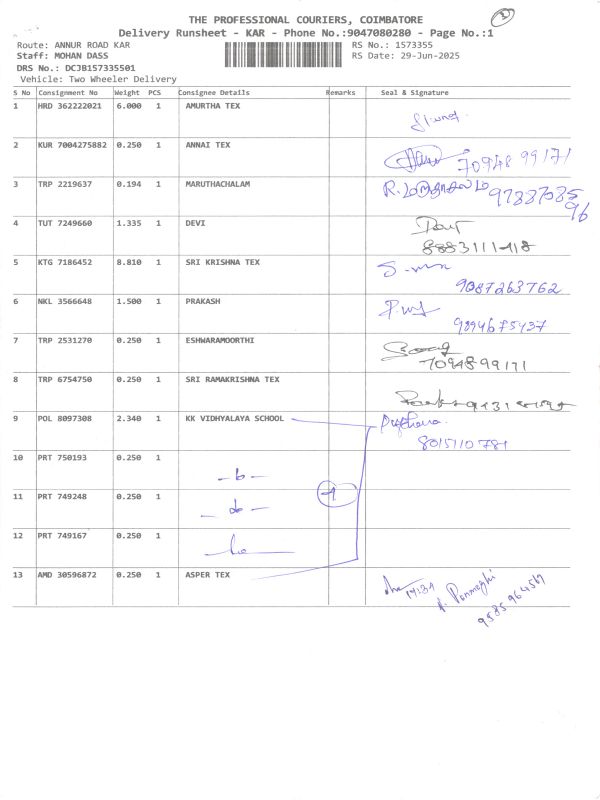 THE PROFESSIONAL COURIERS, COIMBATORE
2
Delivery Runsheet - KAR - Phone No.:9047080280 - Page No.:1
Route: ANNUR ROAD KAR
RS No.: 1573355
Staff: MOHAN DASS
RS Date: 29-Jun-2025
DRS No.: DCJB157335501
Vehicle: Two Wheeler Delivery
S No Consignment No Weight PCS Consignee Details Remarks Seal & Signature
1 HRD 362222021 6.000 1 AMURTHA TEX
2 KUR 7004275882 0.250 1 ANNAI TEX
70948 99171
3 TRP 2219637 0.194 1 MARUTHACHALAM
4 TUT 7249660 1.335 1 DEVI
8883111418
5 KTG 7186452 8.810 1 SRI KRISHNA TEX
9087263762
6 NKL 3566648 1.500 1 PRAKASH
9894675437
7 TRP 2531270 0.250 1 ESHWARAMOORTHI
7094899171
8 TRP 6754750 0.250 1 SRI RAMAKRISHNA TEX
9 POL 8097308 2.340 1 KK VIDHYALAYA SCHOOL
8015110781
10 PRT 750193 0.250 1
11 PRT 749248 0.250 1
12 PRT 749167 0.250 1
13 AMD 30596872 0.250 1 ASPER TEX